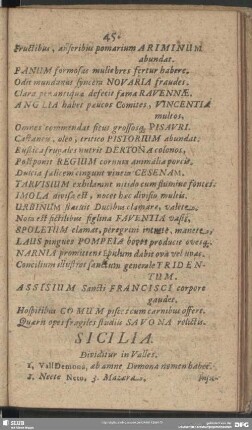 45.
Fructibus, anseribus pomarium ARIMINUM
abundat.
FANUM formosas mulie bres fertur habere,
Odit mundanus synceris NOVARIA fraudes,
Clara perantiqua defecit fama RAVENNÆ,
ANGLIA habet paucos Comites, VINCENTIA
multos,
Omnes commendat ficus grossosq; PISAURI.
Castaneis, oleo, tritico PISTORIUM abundat.
nutrit DERTONA colonos,
Postponit REGIUM cornuta animalia porcis,
Dulcia salicem cingunt vineta CESENAM.
TARVISIUM exhilarant nitido cum flumine fontes
IMOLA divisa est, nocet hæc divisio multis.
URBINUM statuit Ducibus clamare, valete,
Non est fictilibus figlina FAVENTIA vasis,
SPOLETUM clamat, peregrini intrate, manete,
LAUS pingues POMPEIA boves producit ovesq;
NARNIA promittens Epulum dabit ova vel unum.
Concilium illustrat sanctum generale TRIDEN-
TUM.
ASSISIUM Sancti FRANCISCI corpore
gaudet.
Hospitibus COMUM pisces cum carnibus offert.
Quæris opes fragiles studiis SAVONA relictis.
SICILIA.
Dividitur in Valles.
1, Vall Demona, ab amne Demona nomen habet.
2. Neeto Neto, 3. Mazara.